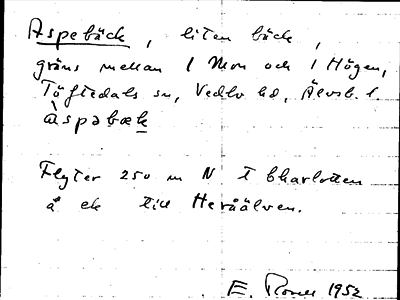 Aspebäck, liten bäck,
gräns mellan 1 Mon och 1 Högen,
Töftedals sn, Vedbo hd, Älvsb. l.
àspəbæk
Flyter 250 m N T Charlotten
å ek till Heråälven.
E. 1952